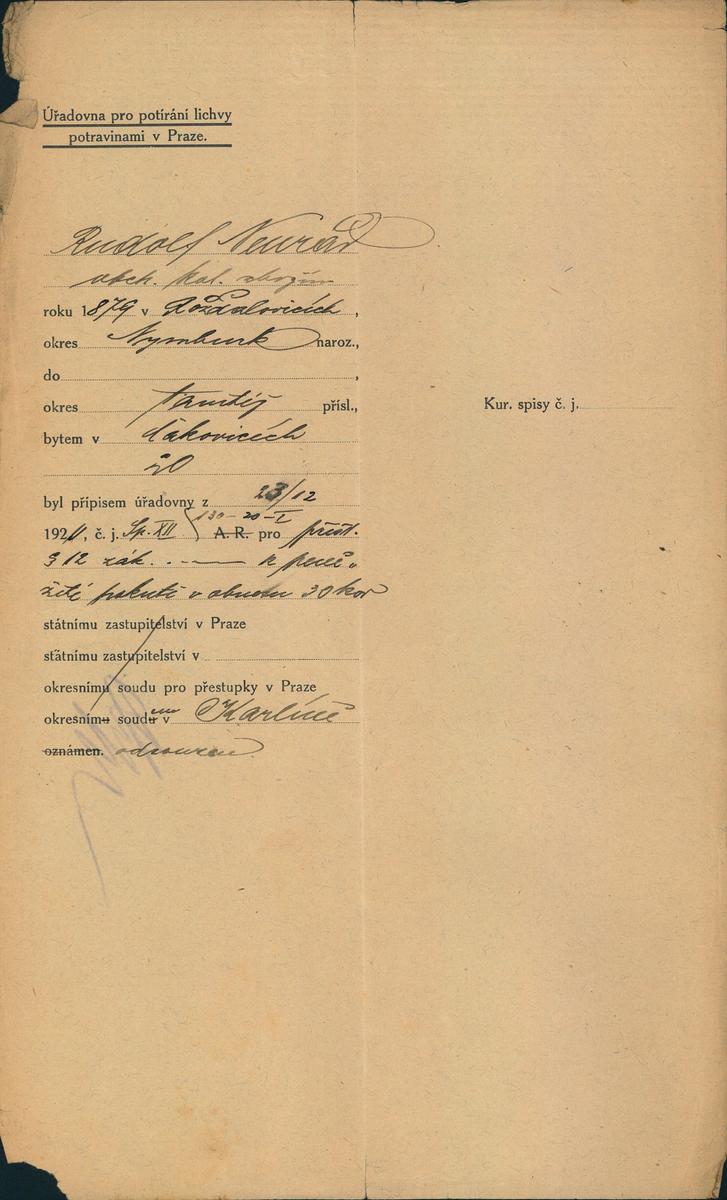 Úřadovna pro potírání lichvy
potravinami v Praze.
Rudolf Neurad
obch. kol. zbožím
roku 1879 v Rožďalovicích,
okres Nymburk naroz.,
do ,
okres tamtéž přísl.,
Kur. spisy č. j.
bytem v Čakovicích
20
byl přípisem úřadovny z 23/12
130-20-I
1920, č. j. Sp. XII A. R. pro přest.
§ 12 zák. . — k peně-
žité pokutě v obnosu 30 kor
státnímu zastupitelství v Praze
státnímu zastupitelství v
okresnímu soudu pro přestupky v Praze
okresním soudem v Karlíně
oznámen. odsouzen